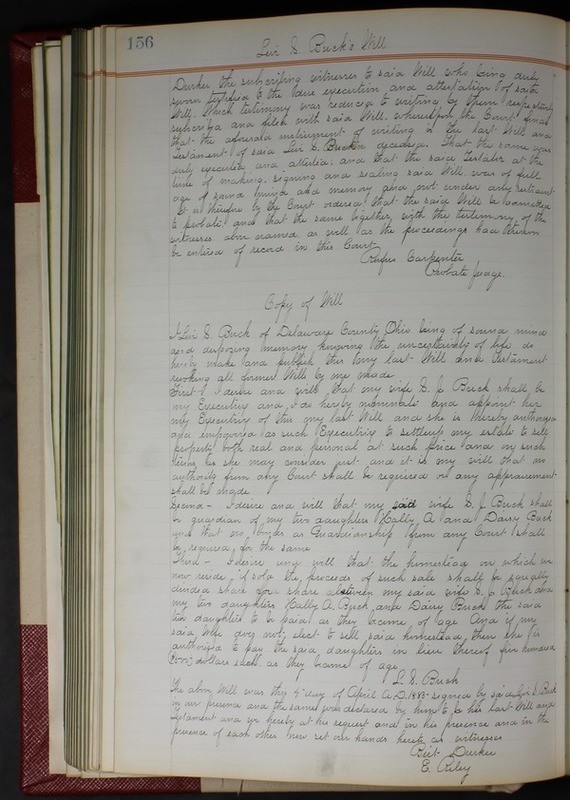 156
Levi S. Buck's Will
Durkee the subscribing witnesses to said Will who being duly
sworn testified to the due execution and attestation of said
Will. Which testimony was reduced to writing by them respectively
subscribed and filed with said Will. whereupon the Court finds
that the aforesaid instrument of writing is the last Will and
Testament of said Levi S. Buck deceased. That the same was
duly executed and attested: and that the said Testator at the
time of making, signing and sealing said Will, was of full
age of sound mind and memory and not under any restraint
It is therefore by the Court ordered that the said Will be admitted
to probate: and that the same together with the testimony of the
witnesses above named as well as the proceedings had thereon
be entered of record in this Court
Rufus Carpenter
Probate Judge.
Copy of Will
I Levi S. Buck of Delaware County Ohio being of sound mind
and disposing memory knowing the uncertainty of life do
hereby make and publish this my last Will and Testament
revoking all former Wills by me made
First - I desire and will that my wife S. J. Buck shall be
my Executrix and I do hereby nominate and appoint her
my Executrix of this my last Will and she is hereby authorized
and empowered as such Executrix to settle up my estate to sell
property both real and personal at such price and on such
terms as she may consider just and it is my will that no
authority from any Court shall be required or any appraisement
shall be made
Second - I desire and will that my said wife S. J. Buck shall
be guardian of my two daughters Hally A. and Dairy Buck
and that no bonds as Guardianship from any Court shall
be required for the same
Third - I desire and will that the homestead on which we
now reside, if sold the proceeds of such sale shall be equally
divided share and share between my said wife S. J. Buck and
my two daughters Hally A. Buck and Dairy Buck the said
two daughters to be paid as they become of age And if my
said wife does not elect to sell said homestead, then she is
authorized to pay the said daughters in lieu thereof five hundred
dollars each as they become of age
L. S. Buck
The above Will was this 4th day of April A.D. 1883 signed by said Levi S. Buck
in our presence and the same was declared by him to be his last Will and
Testament and we hereby at his request and in his presence and in the
presence of each other now set our hands hereto as witnesses
Bert Durkee
E. Riley